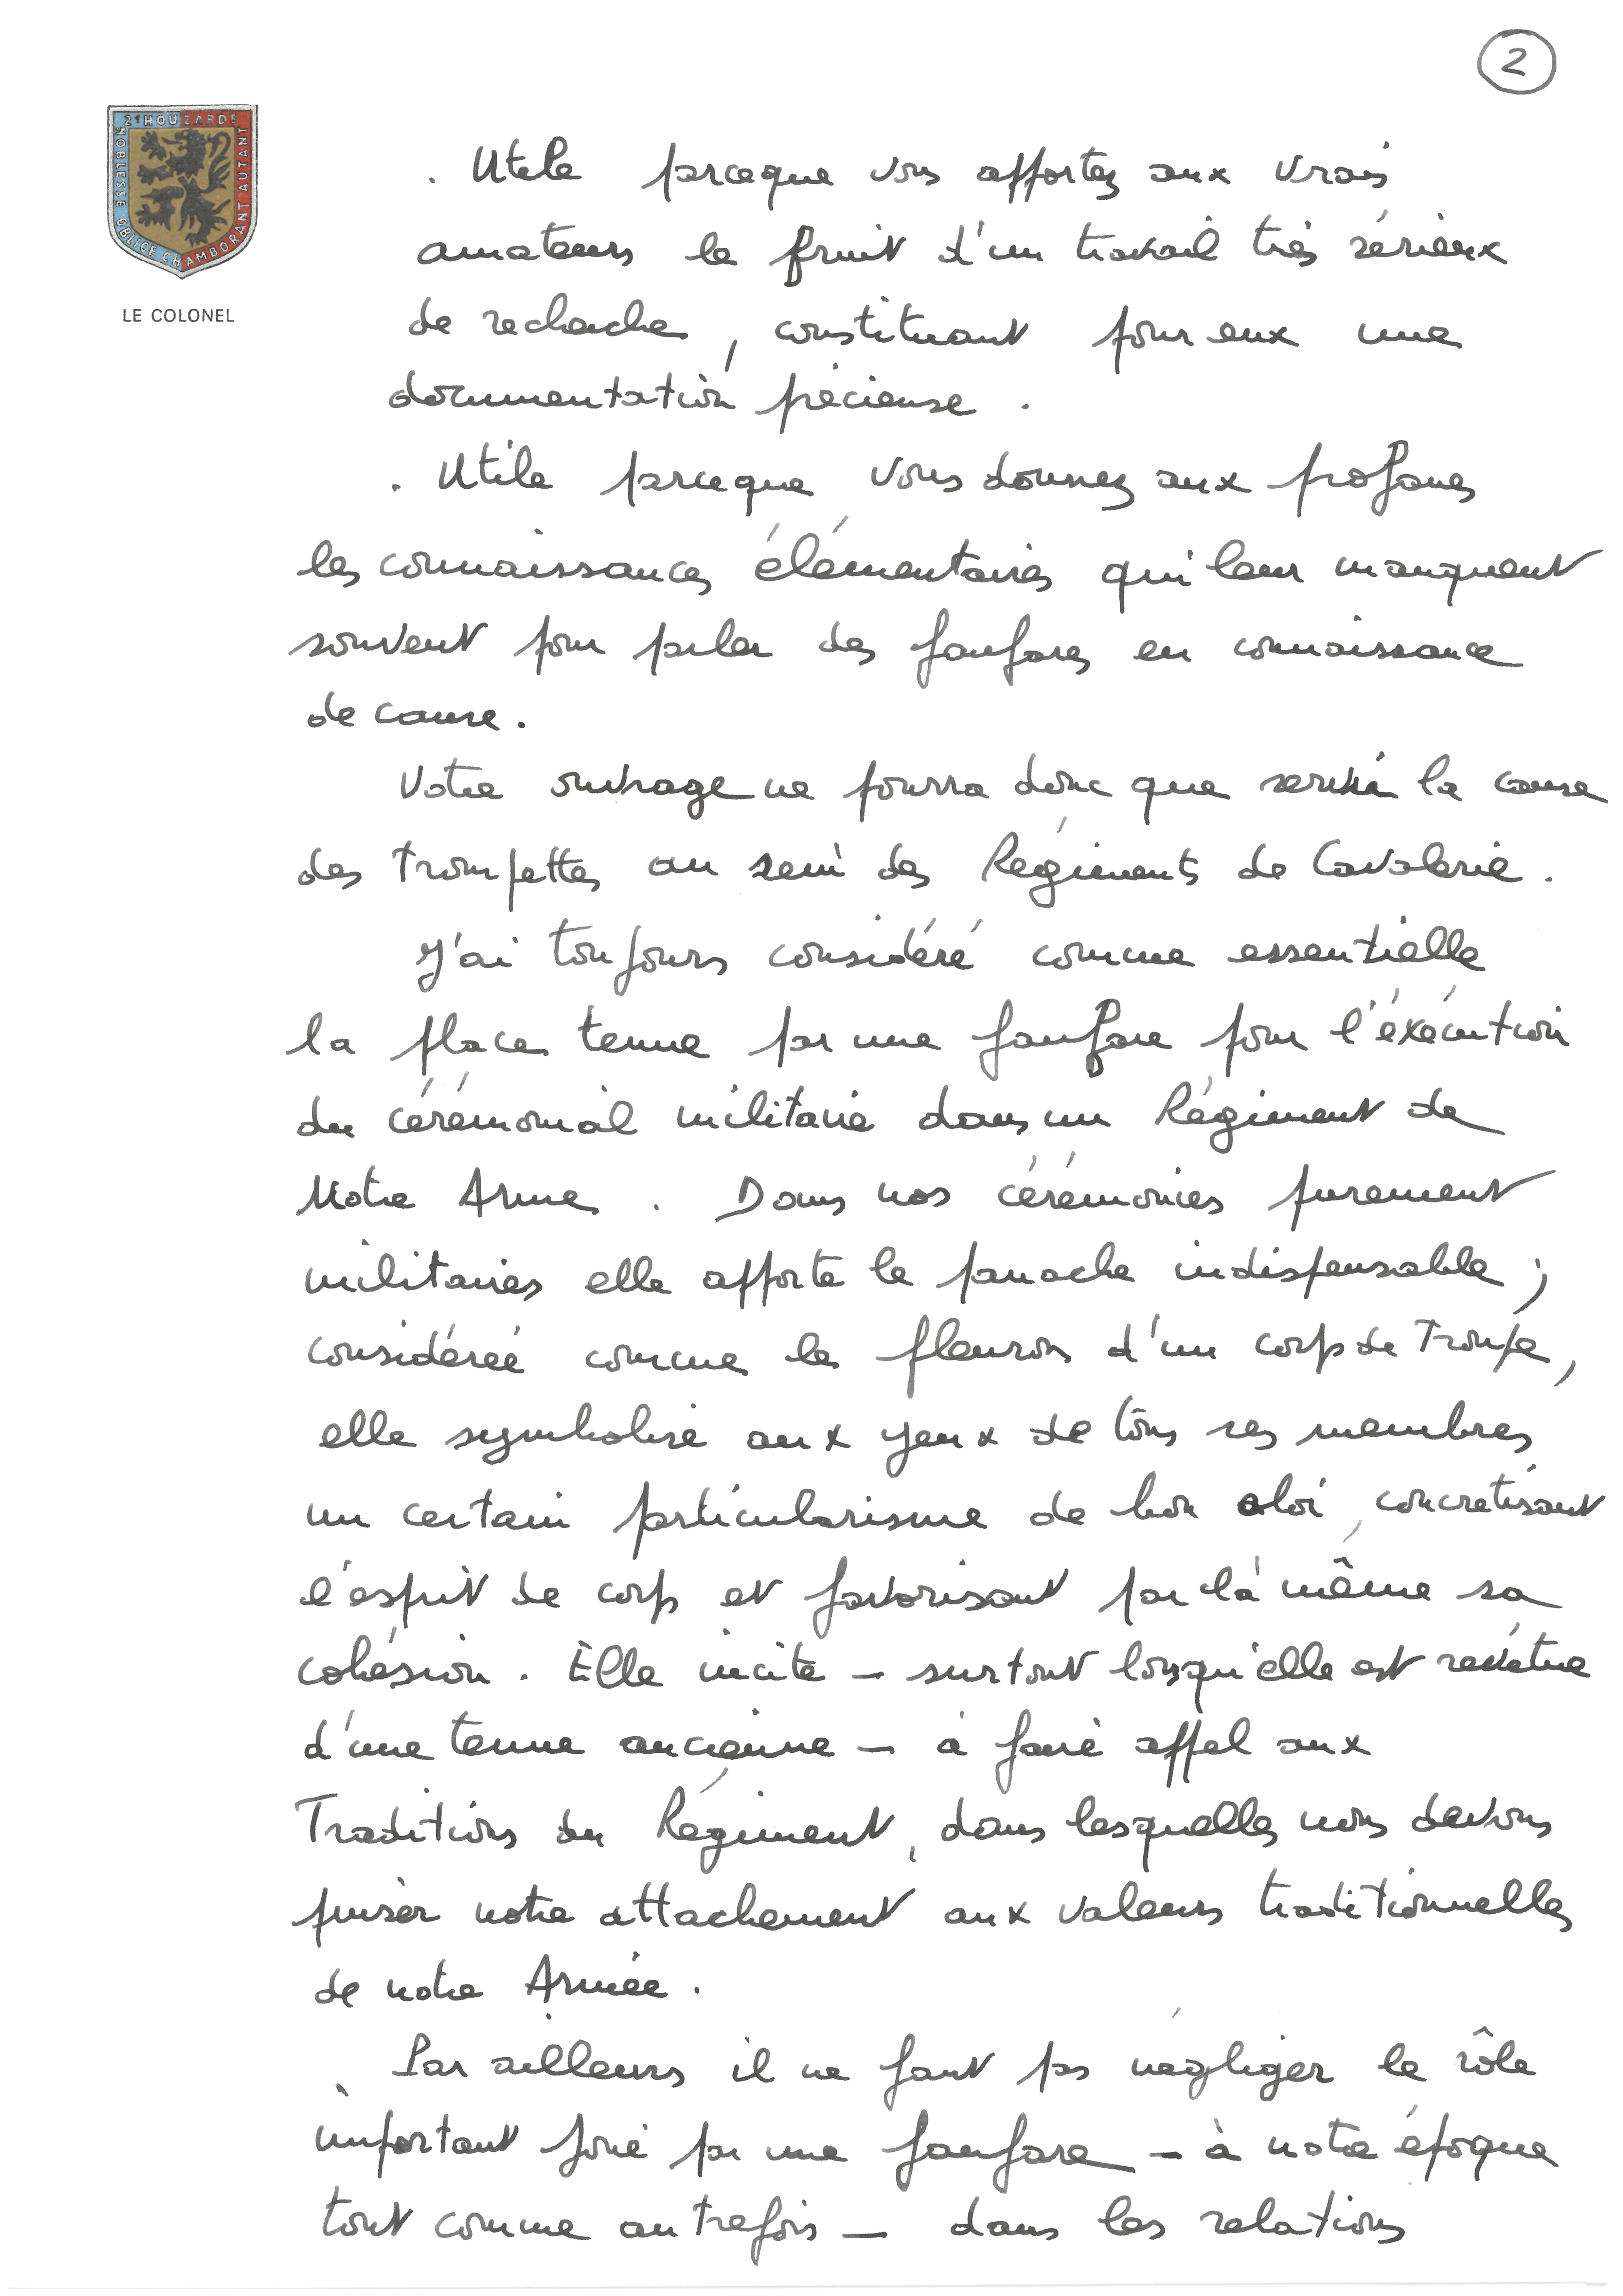 2
2e HOUZARDS
NOBLESSE OBLIGE CHAMBORANT AUTANT
LE COLONEL
. Utile parceque vous apportez aux vrais
amateurs le fruit d'un travail très sérieux
de recherche, constituant pour eux une
documentation précieuse.
. Utile parceque vous donnez aux profanes
les connaissances élémentaires qui leur manquent
souvent pour parler des fanfares en connaissance
de cause.
Votre ouvrage ne pourra donc que servir la cause
des Trompettes au sein des Régiments de Cavalerie.
J'ai toujours considéré comme essentielle
la place tenue par une fanfare pour l'éxécution
du cérémonial militaire dans un Régiment de
Notre Arme. Dans nos cérémonies purement
militaires elle apporte le panache indispensable ;
considérée comme le fleuron d'un corps de Troupe,
elle symbolise aux yeux de tous ses membres
un certain particularisme de bon aloi, concrétisant
l'esprit de corps et favorisant par là même sa
cohésion. Elle incite – surtout lorsqu'elle est revêtue
d'une tenue ancienne – à faire appel aux
Traditions du Régiment, dans lesquelles nous devons
puiser notre attachement aux valeurs traditionnelles
de notre Armée.
Par ailleurs il ne faut pas négliger le rôle
important joué par une fanfare – à notre époque
tout comme autrefois – dans les relations